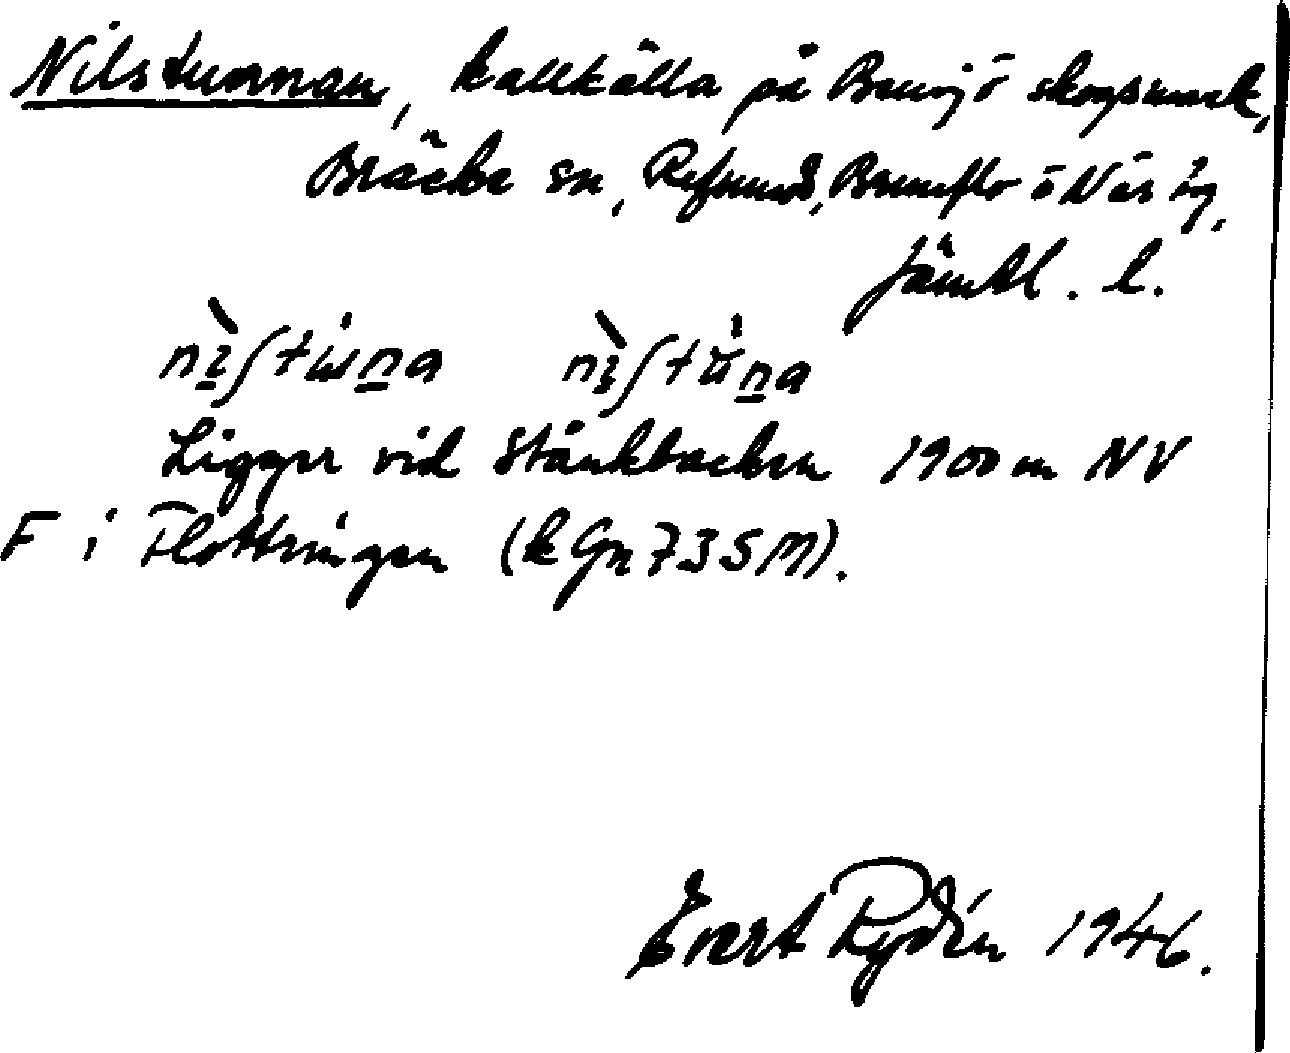 Nilstunnan, kallkälla på Bensjö skogsmark,
Bräcke sn, Refsunds, Brunflo o Näs tg,
Jämtl. l.
Ligger vid Stänkbacken 1900 m NV
F i Flottringen (k Gn 735 M).
Evert Rydén 1946.